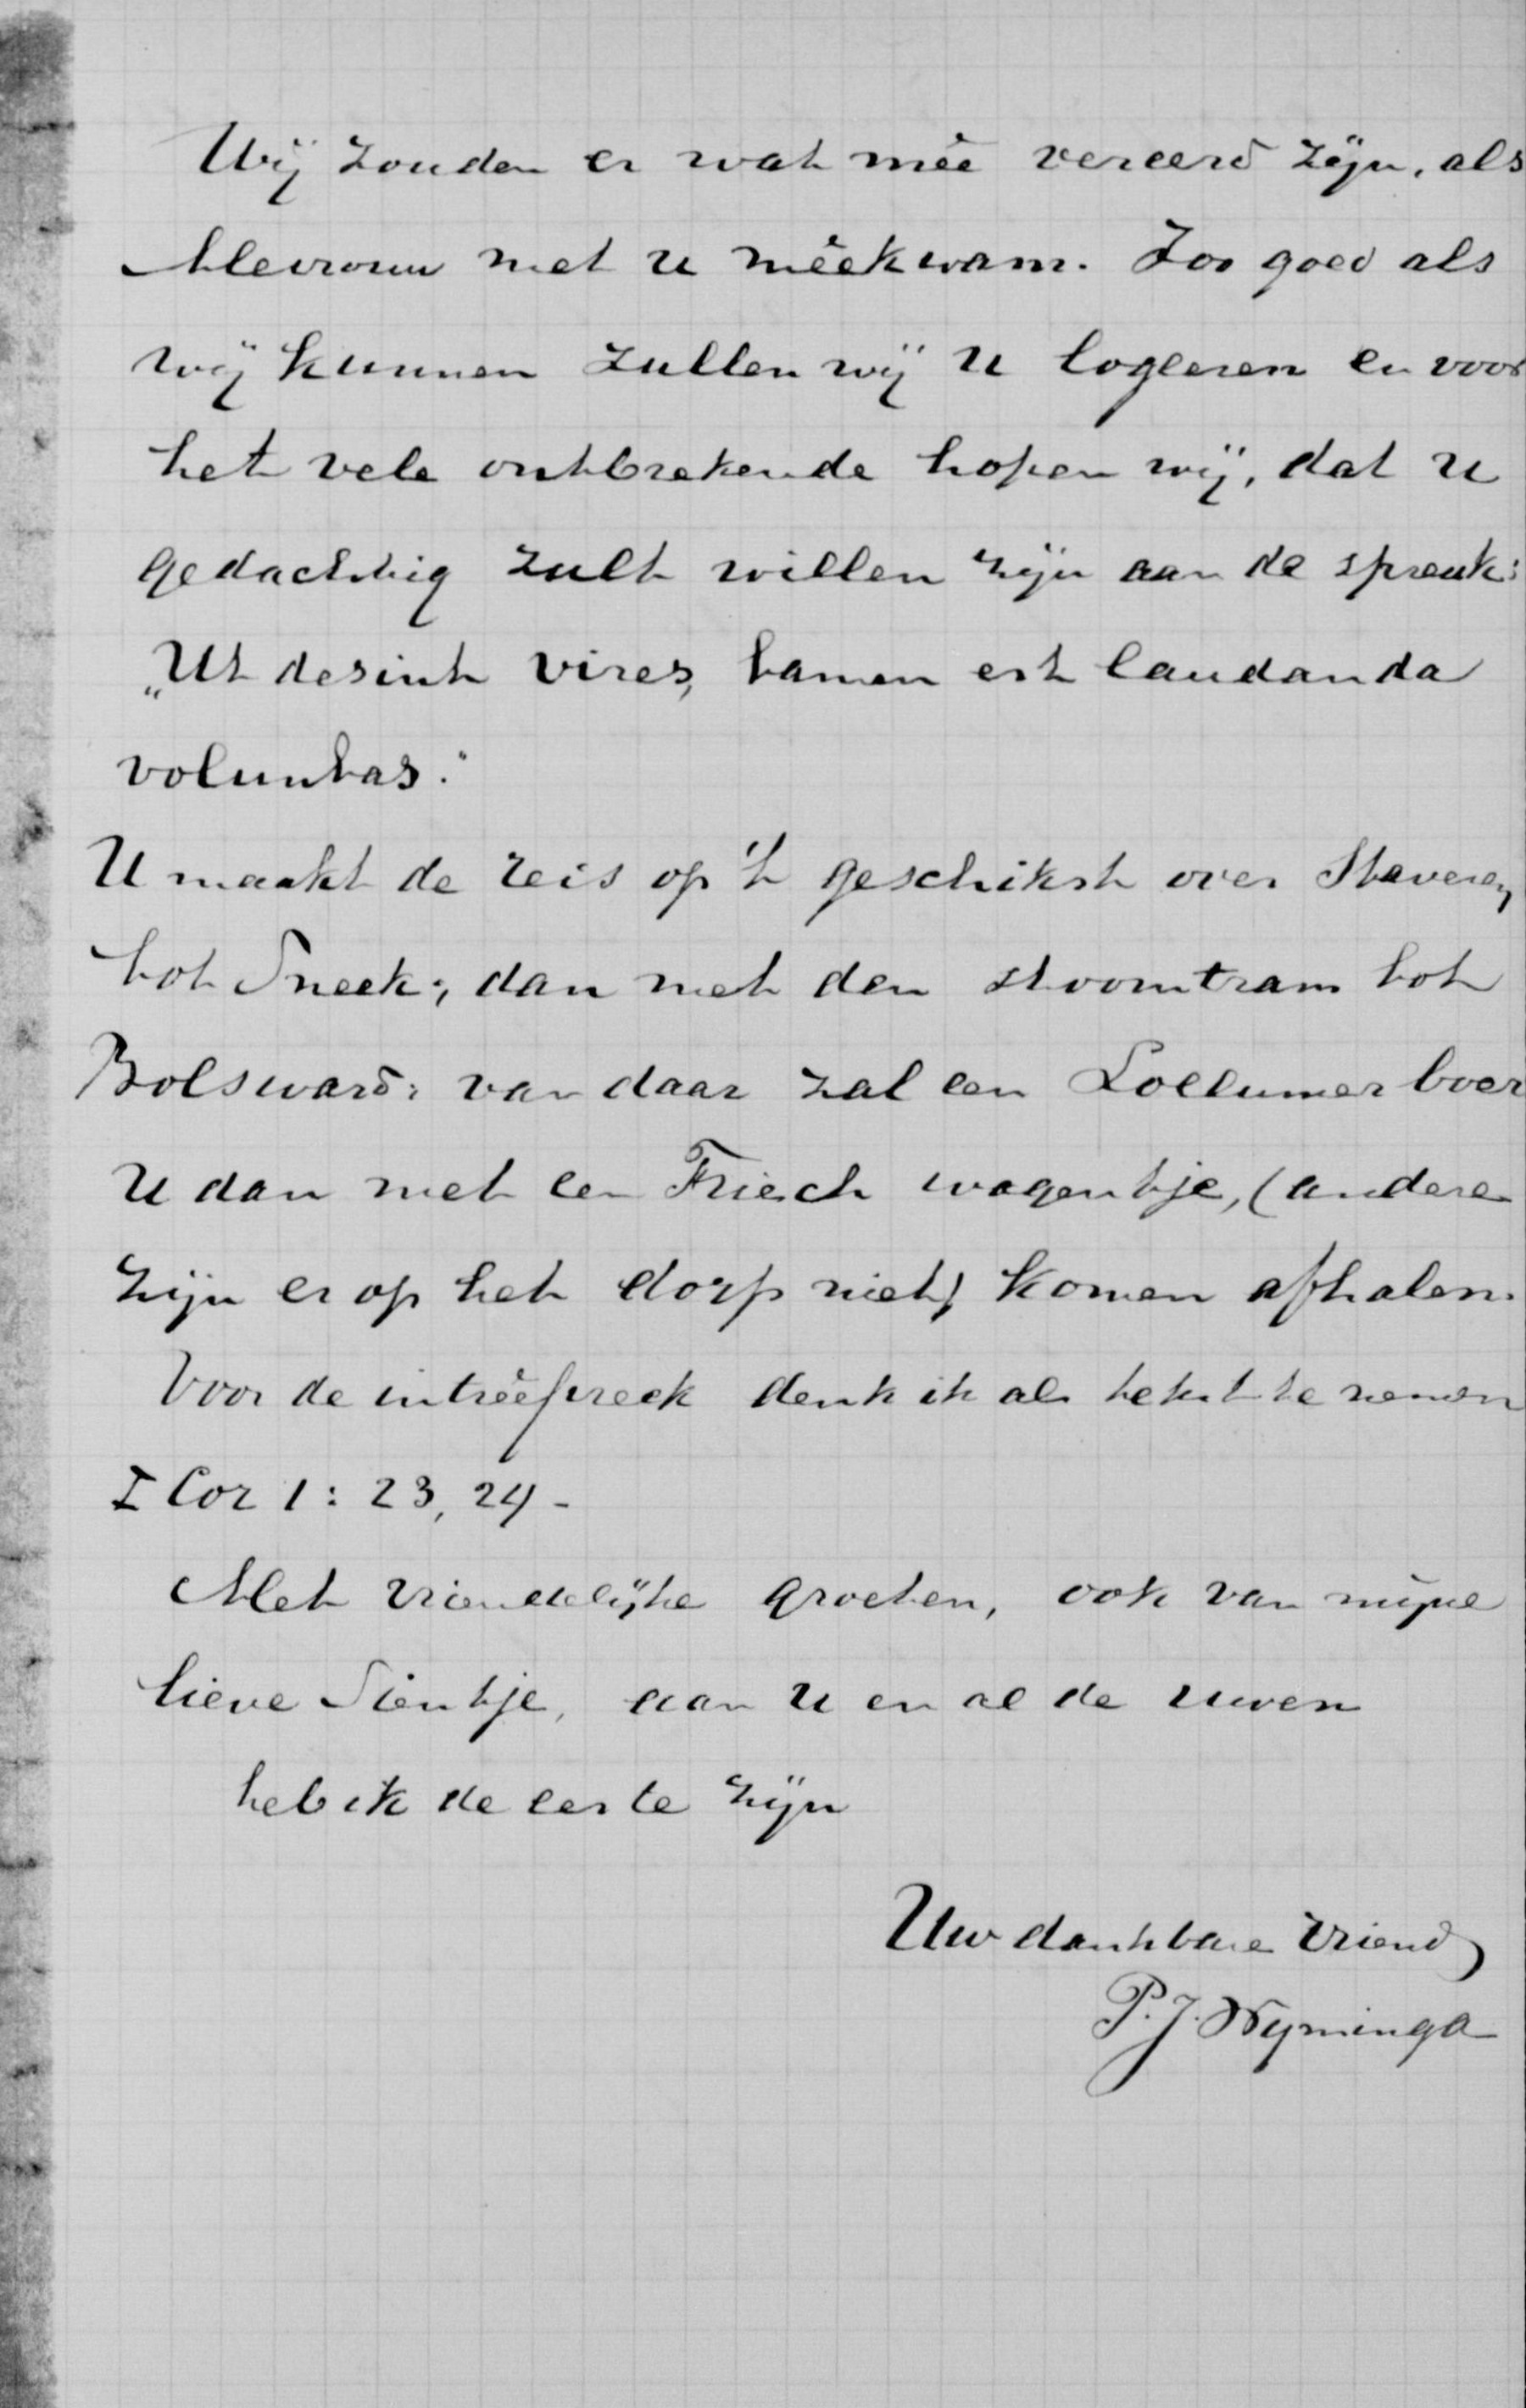 Wij zouden er wat meê vereerd zijn, als
Mevrouw met u meêkwam. Zoo goed als
wij kunnen zullen wij u logeren en voor
het vele ontbrekende hopen wij, dat u
gedachtig zult willen zijn aan de spreuk:
„Ut desint vires, tamen est laudanda
voluntas."
U maakt de reis op 't geschikst over Staveren
tot Sneek; dan met den stoomtram tot
Bolsward; van daar zal een Lollumer boer
u dan met een Friesch wagentje, (andere
zijn er op het dorp niet) komen afhalen.
Voor de intreêpreek denk ik als tekst te nemen
I Cor 1: 23, 24 -
Met vriendelijke groeten, ook van mijne
lieve Sientje, aan u en al de uwen
heb ik de eer te zijn
Uw dankbare vriend
P. J. Wyminga